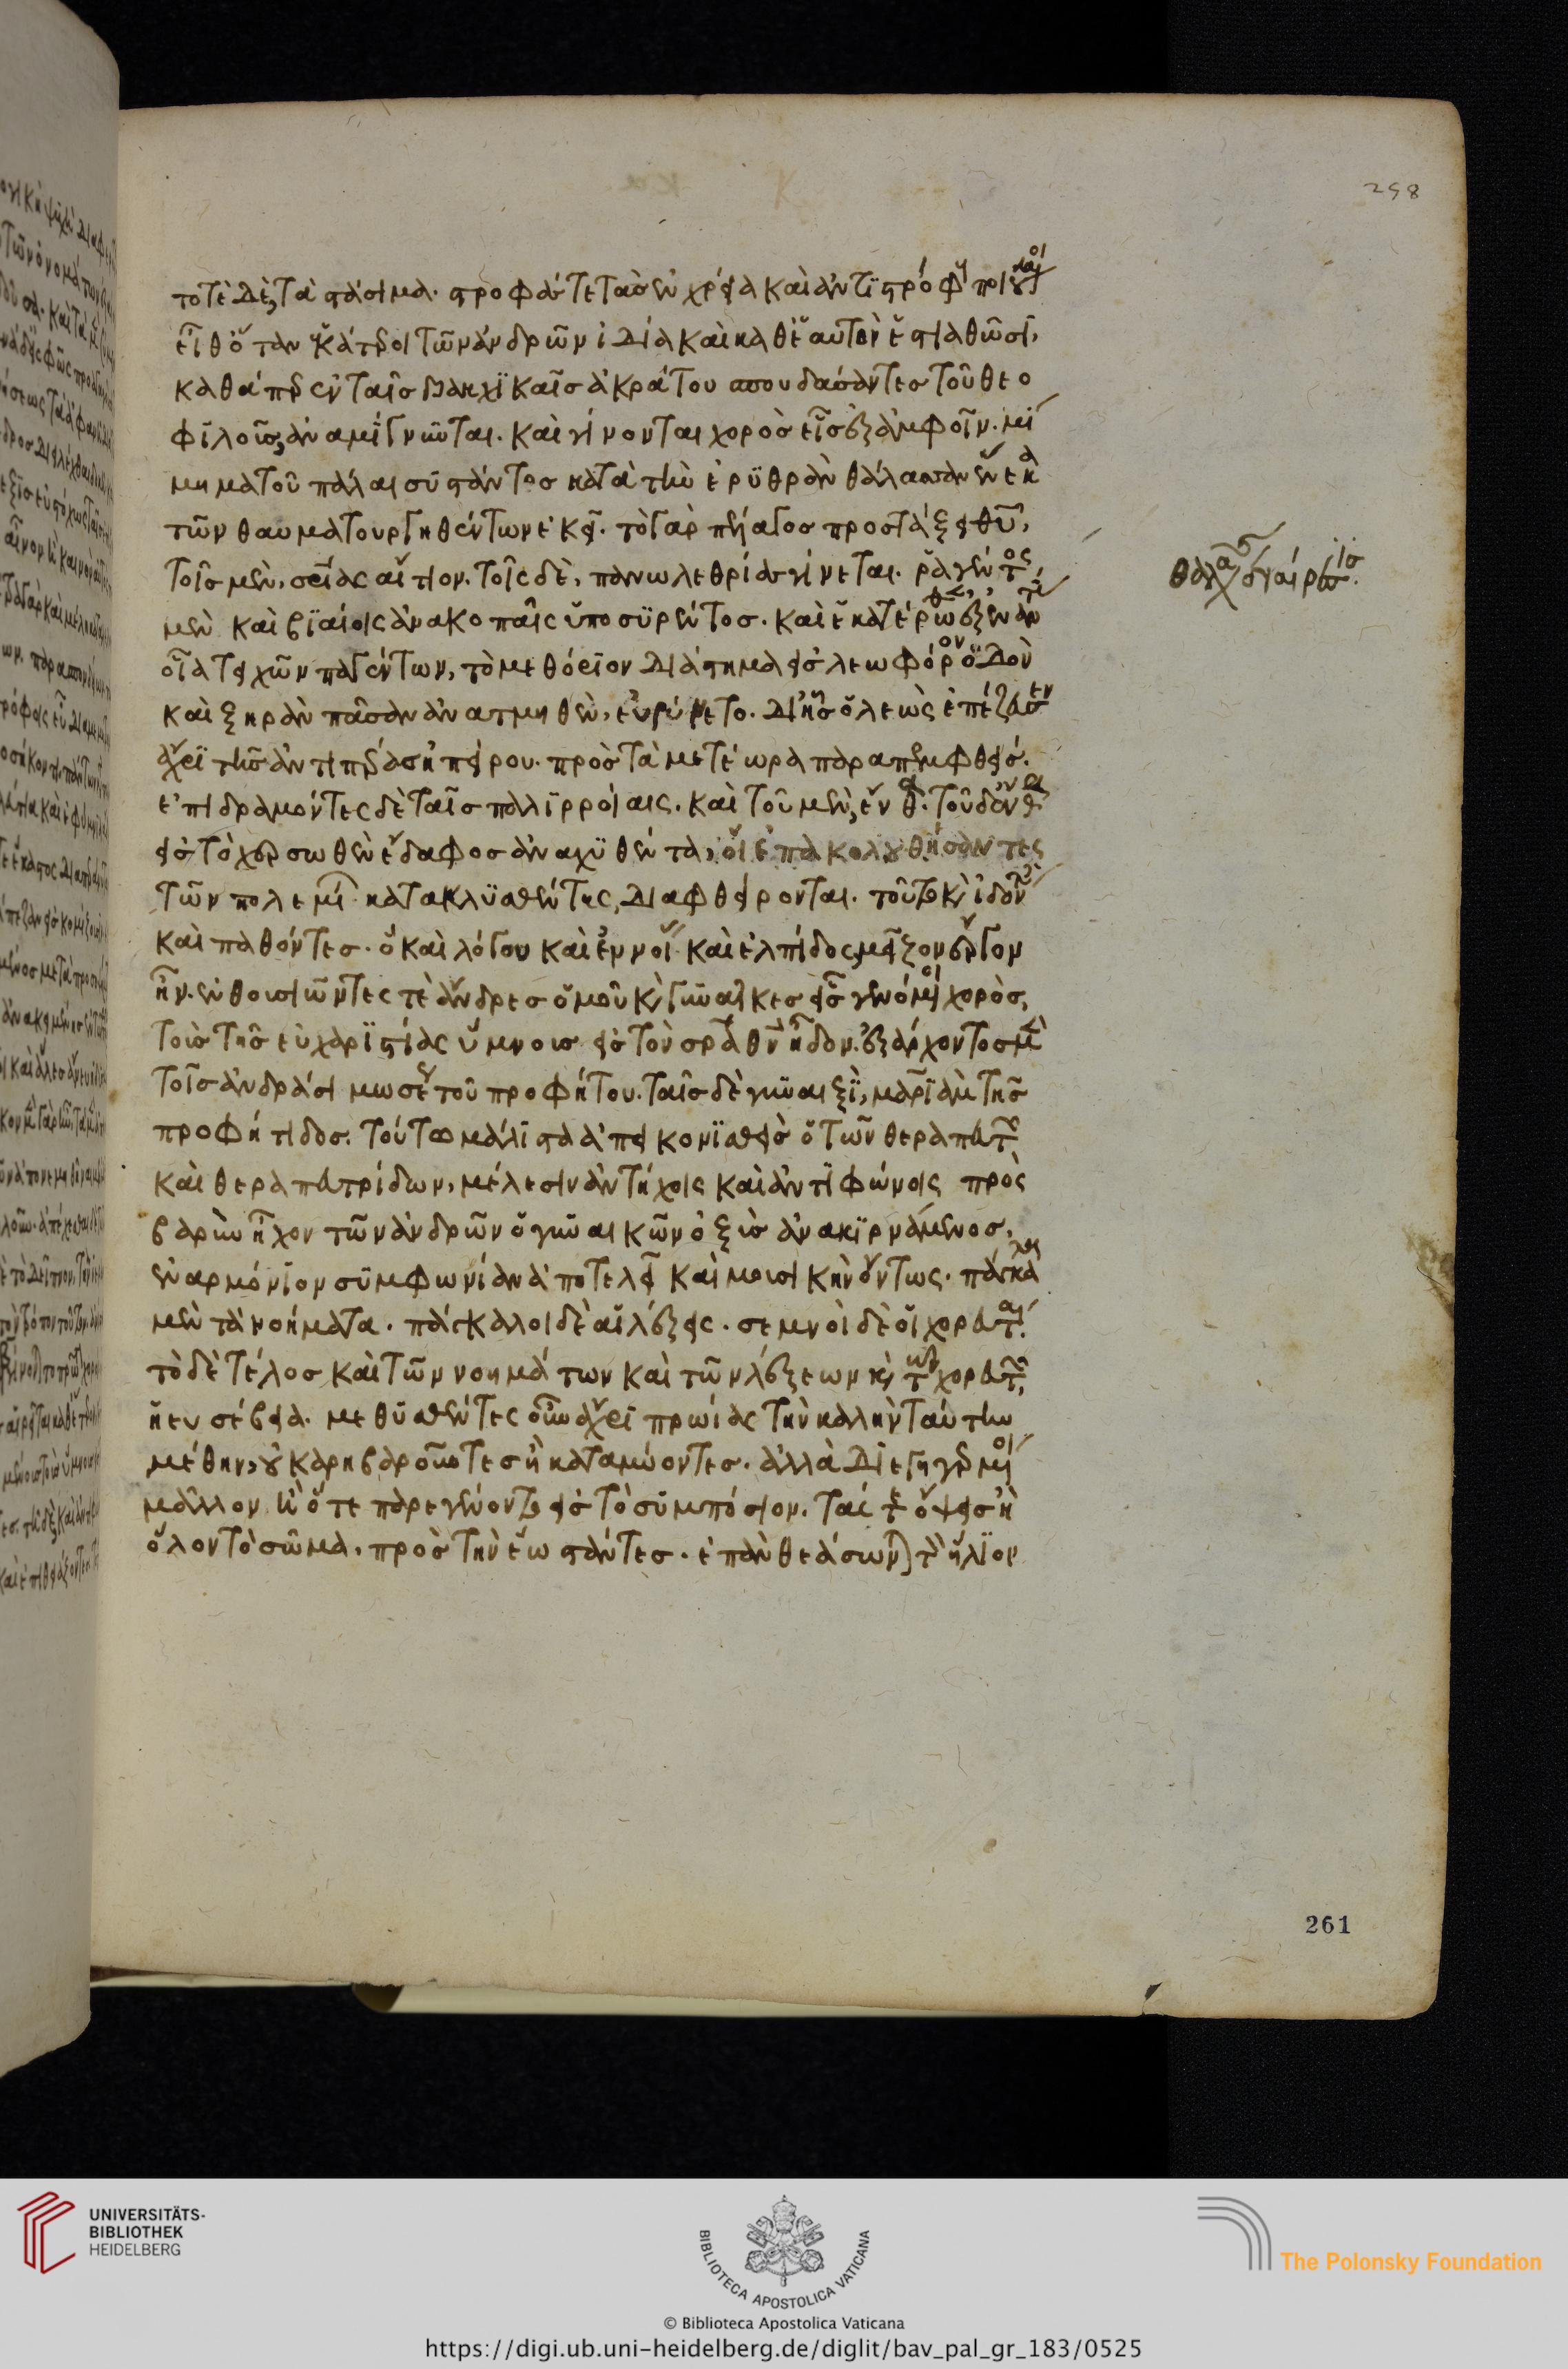 τοτὲ δὲ, τὰ στάσιμα. στροφάς τε τὰς ἐν χρεία καὶ ἀντιστρόφους ποιούμενοι
εἶθ' ὅταν ἑκάτεροι τῶν ἀνδρῶν ἰδία καὶ καθ' ἑαυτὸν ἑστιαθῶσι,
καθάπερ ἐν ταῖς βακχικαῖς ἀκράτου σπουδάσαντες τοῦ θεο
φιλοῦς, ἀναμίγνυνται. καὶ γίνονται χορὸς εἷς ἐξ ἀμφοῖν. μί
μημα τοῦ πάλαι συστάντος κατὰ τὴν ἐρυθρὰν θάλασσαν ἕνεκα
τῶν θαυματουργηθέντων ἐκεῖ. τὸ γὰρ πέλαγος προστάξει θυ,
τοῖς μὲν, σρίας αἴτιον. τοῖς δὲ, πανωλεθρίας γίνεται. ῥαγέντος
μὲν καὶ βιαίοις ἀνακοπαῖς ὑποσυρέντος. καὶ ἑκατέρωθεν ἐξ ἐναντίας
οἷα τειχῶν παγέντων, τὸ μεθόριον διάστημα εἰς λεωφόρον ὁδὸν
καὶ ξηρὰν πᾶσαν ἀνατμηθὲν, εὐρύνετο. δι' ἧς ὁ λεὼς ἐπέζευσεν
ἄχρι τῆς ἀντιπέρας ἠπείρου. πρὸς τὰ μετέωρα παραπεμφθείς.
ἐπιδραμόντες δὲ ταῖς παλιρροίαις. καὶ τοῦ μὲν, ἔνθα. τοῦ δ' ἔνθα
εἰς τὸ χερσωθὲν ἔδαφος ἀναχυθέντα, οἱ ἐπακολουθήσαντες
τῶν πολεμίων κατακλυσθέντες, διαφθείρονται. τοῦτο καὶ ἰδόντες
καὶ παθόντες. ὃ καὶ λόγου καὶ ἐννοίας καὶ ἐλπίδος μεῖζον ἔργον
ἦν. ἐνθουσιῶντες τὲ ἄνδρες ὁμοῦ καὶ γυναῖκες εἷς γενόμενοι χορὸς,
τοὺς τῆς εὐχαριστίας ὕμνους εἰς τὸν σρα θν ᾖδον. ἐξάρχοντος μὲν
τοῖς ἀνδράσι μωσέως τοῦ προφήτου. ταῖς δὲ γυναιξὶ, μαριὰμ τῆς
προφήτιδος. τούτω μάλιστα ἀπεικονισθεὶς ὁ τῶν θεραπευτῶν
καὶ θεραπευτρίδων, μέλεσιν ἀντήχοις καὶ ἀντιφώνοις πρὸς
βαρὺν ἦχον τῶν ἀνδρῶν ὁ γυναικῶν ὀξὺς ἀνακιρνάμενος,
ἐναρμόνιον συμφωνίαν ἀποτελεῖ καὶ μουσικὴν ὄντως. πάγκαλα
μὲν τὰ νοήματα. πάγκαλοι δὲ αἱ λέξεις. σεμνοὶ δὲ οἱ χορευταί.
τὸ δὲ τέλος καὶ τῶν νοημάτων καὶ τῶν λέξεων καὶ τῶν χορευτῶν,
ἡ εὐσέβεια. μεθυσθέντες οὖν ἄχρι πρωίας τὴν καλὴν ταύτην
μέθην, οὐ καρηβαροῦντες ἢ καταμύοντες. ἀλλὰ διεγηγερμένοι
μᾶλλον ἢ ὅτε παρεγένοντο εἰς τὸ συμπόσιον. τάς τε ὄψεις καὶ
ὅλον τὸ σῶμα. πρὸς τὴν ἕω στάντες. ἐπὰν θεάσωνται τὸν ἥλιον
298
261
UNIVERSITÄTS-
BIBLIOTHEK
HEIDELBERG
BIBLIOTECA APOSTOLICA VATICANA
The Polonsky Foundation
© Biblioteca Apostolica Vaticana
https://digi.ub.uni-heidelberg.de/diglit/bav_pal_gr_183/0525